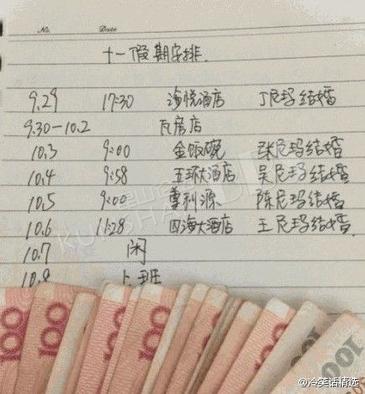 No. Date
十一假期安排
9.29 17:30 海悦酒店 丁尼玛结婚
9.30-10.2 瓦房店
10.3 9:00 金饭碗 张尼玛结婚
10.4 9:58 五环大酒店 吴尼玛结婚
10.5 9:00 喜利源 陈尼玛结婚
10.6 11:28 四海大酒店 王尼玛结婚
10.7 闲
10.8 上班
100 100 100 100
@冷笑话精选